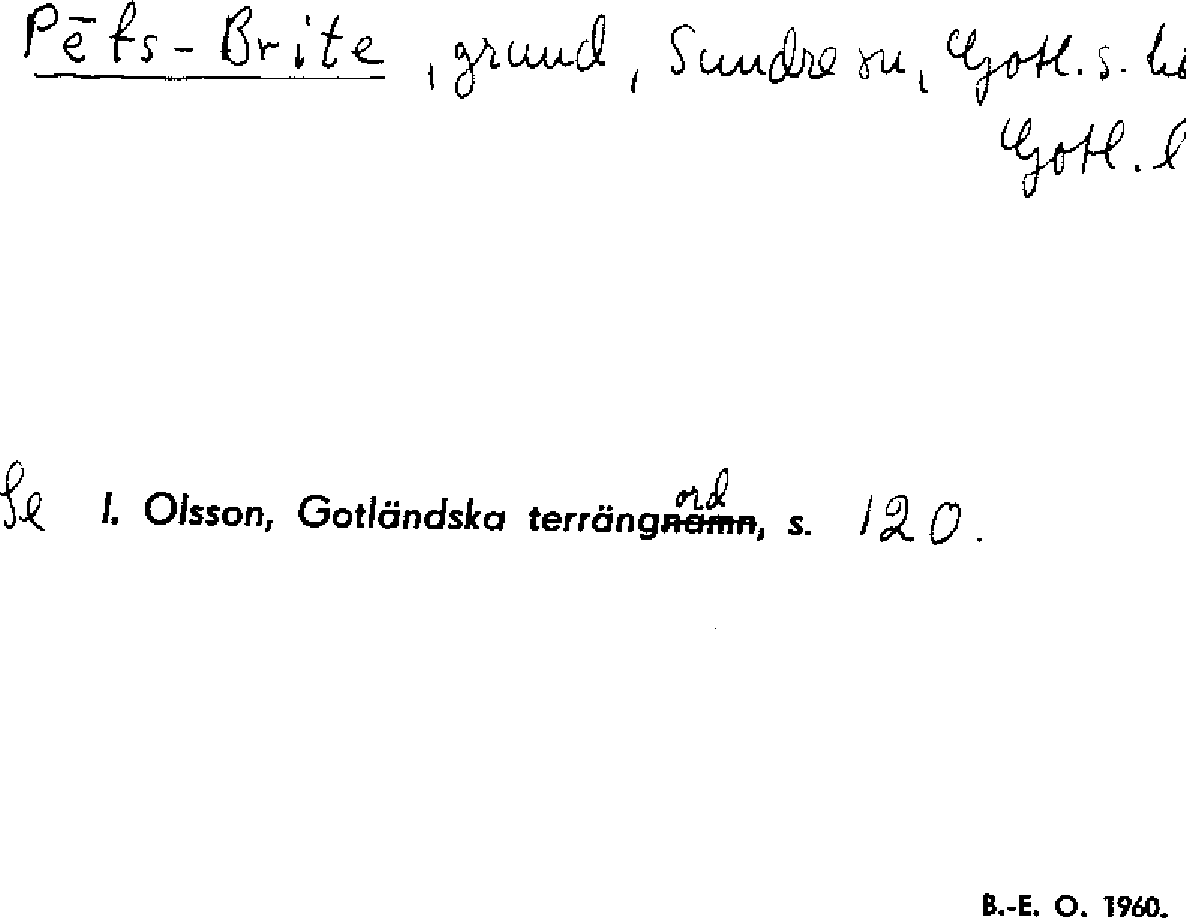 Pēts-Brite, grund, Sundre sn, Gotl. s. hd
Gotl. l
Se I. Olsson, Gotländska terräng~~namn~~ord, s. 120.
B.-E. O. 1960.